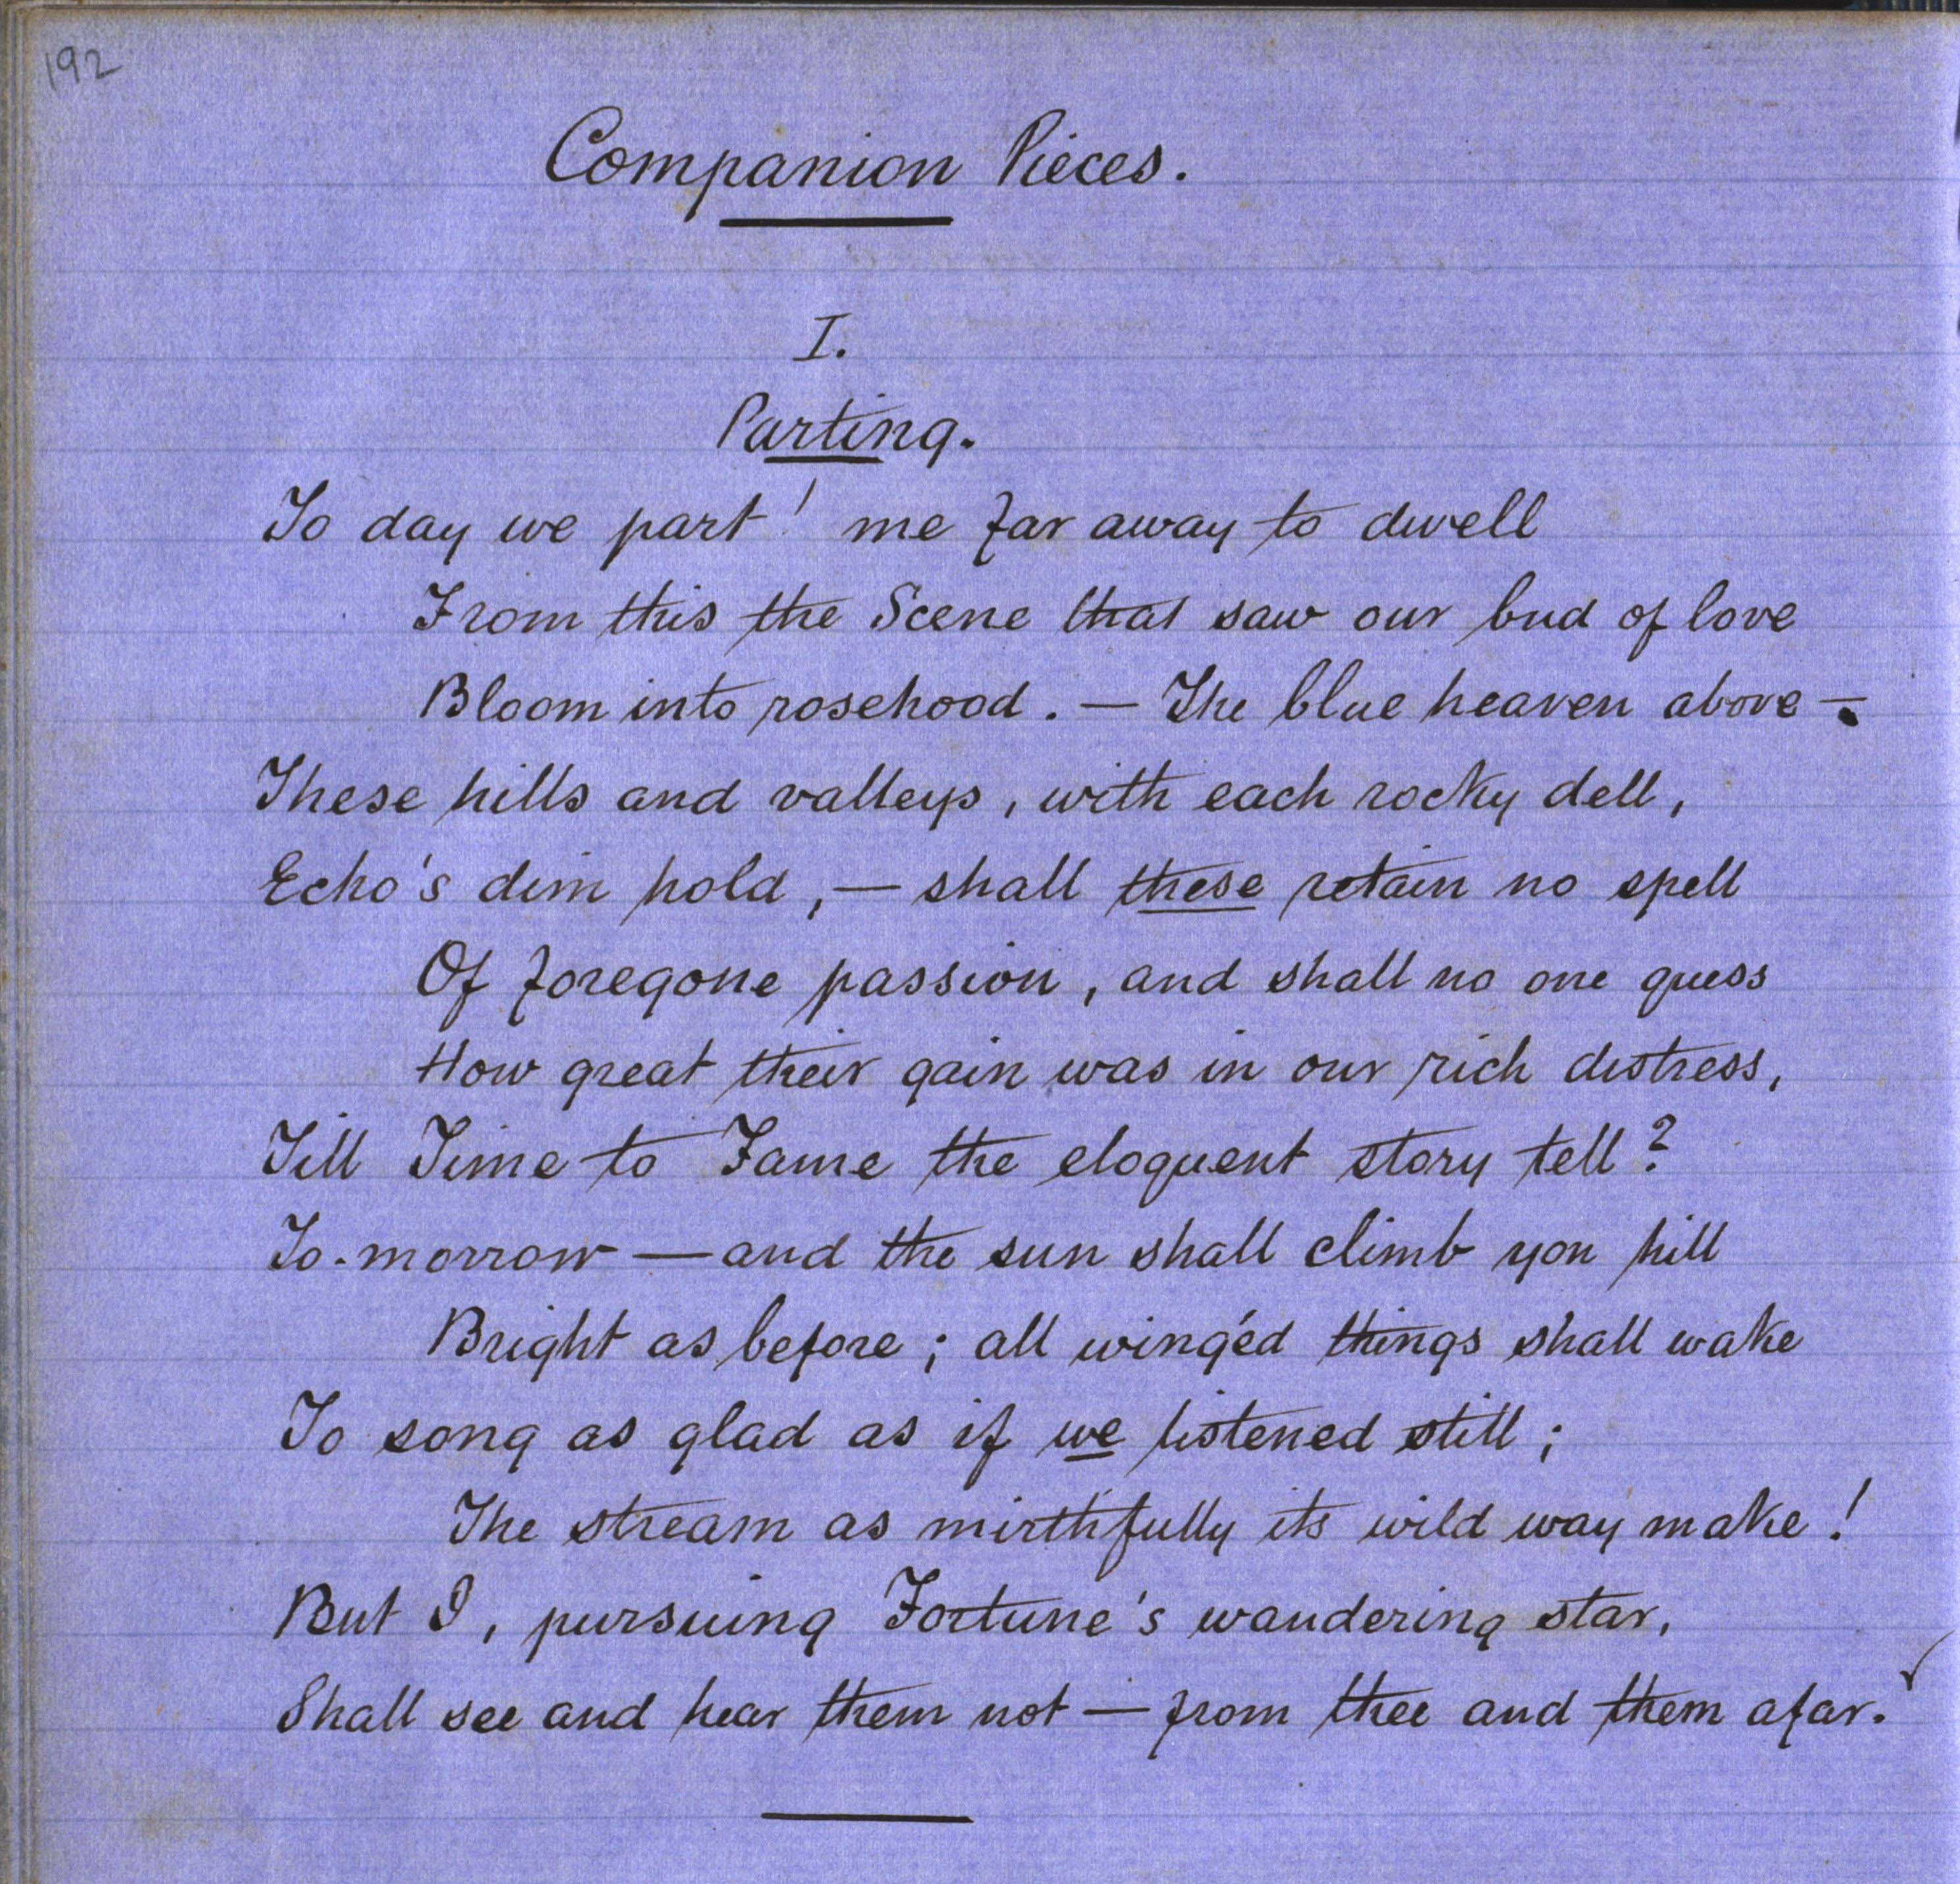 192
Companion Pieces.
I.
Parting.
To day we part! me far away to dwell
From this the Scene that saw our bud of love
Bloom into rosehood. — The blue heaven above —
These hills and valleys, with each rocky dell,
Echo's dim hold, — shall these retain no spell
Of foregone passion, and shall no one guess
How great their gain was in our rich distress,
Till Time to Fame the eloquent story tell?
To-morrow — and the sun shall climb yon hill
Bright as before; all wingéd things shall wake
To song as glad as if we listened still;
The stream as mirthfully its wild way make!
But I, pursuing Fortune's wandering star,
Shall see and hear them not — from thee and them afar.